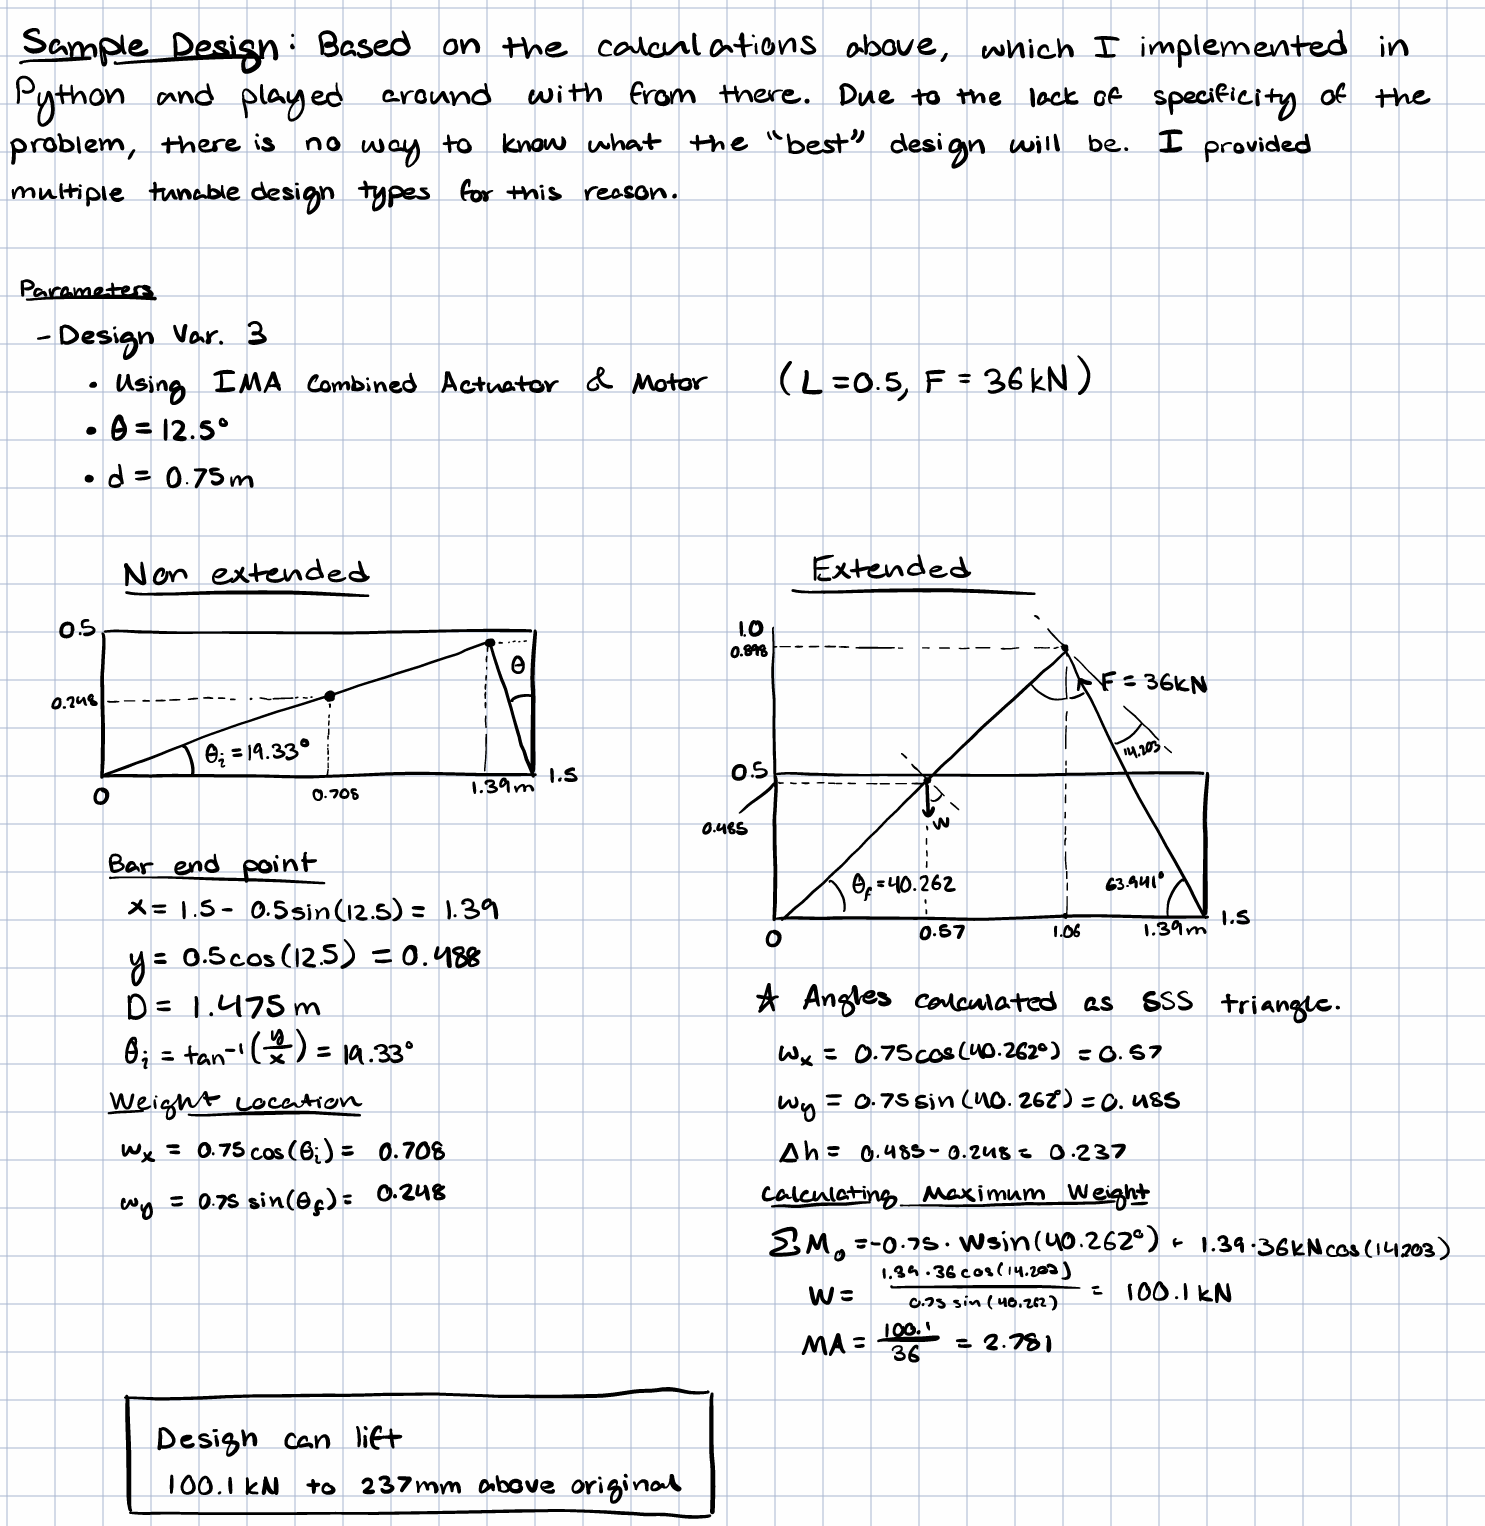 Sample Design: Based on the calculations above, which I implemented in
Python and played around with from there. Due to the lack of specificity of the
problem, there is no way to know what the "best" design will be. I provided
multiple tunable design types for this reason.
Parameters
- Design Var. 3
• Using IMA Combined Actuator & Motor (L=0.5, F = 36kN)
• θ = 12.5°
• d = 0.75m
Non extended
0.5
θ
0.248
θi = 19.33°
0
0.708
1.39m
1.5
Bar end point
x = 1.5 - 0.5sin(12.5) = 1.39
y = 0.5cos(12.5) = 0.488
D = 1.475m
θi = tan⁻¹(y/x) = 19.33°
Weight Location
wx = 0.75cos(θi) = 0.708
wy = 0.75 sin(θf) = 0.248
Extended
1.0
0.898
F = 36kN
14.203
0.5
0.485
W
θf = 40.262
63.941°
0
0.57
1.06
1.39m
1.5
★ Angles calculated as SSS triangle.
wx = 0.75cos(40.262°) = 0.57
wy = 0.75 sin(40.262°) = 0.485
Δh = 0.485 - 0.248 = 0.237
Calculating Maximum Weight
ΣMo = -0.75 · Wsin(40.262°) + 1.39·36kNcos(14.203)
W = 1.39·36cos(14.203) / 0.75 sin(40.262) = 100.1 kN
MA = 100.1/36 = 2.781
Design can lift
100.1 kN to 237mm above original